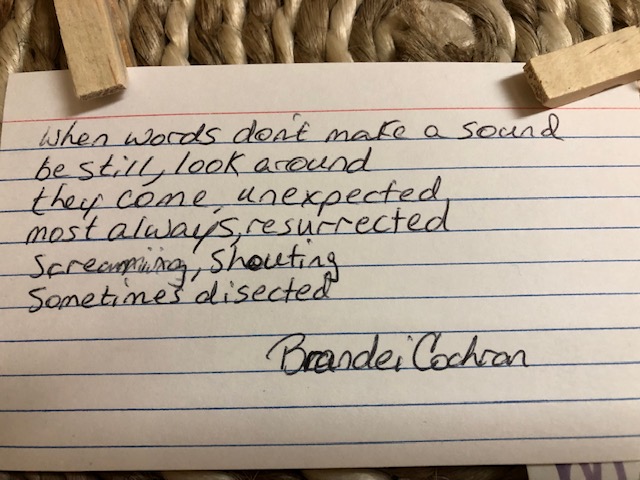 when words don't make a sound
be still, look around
they come, unexpected,
most always, resurrected
screaming, shouting
sometimes disected
Brandei Cochran